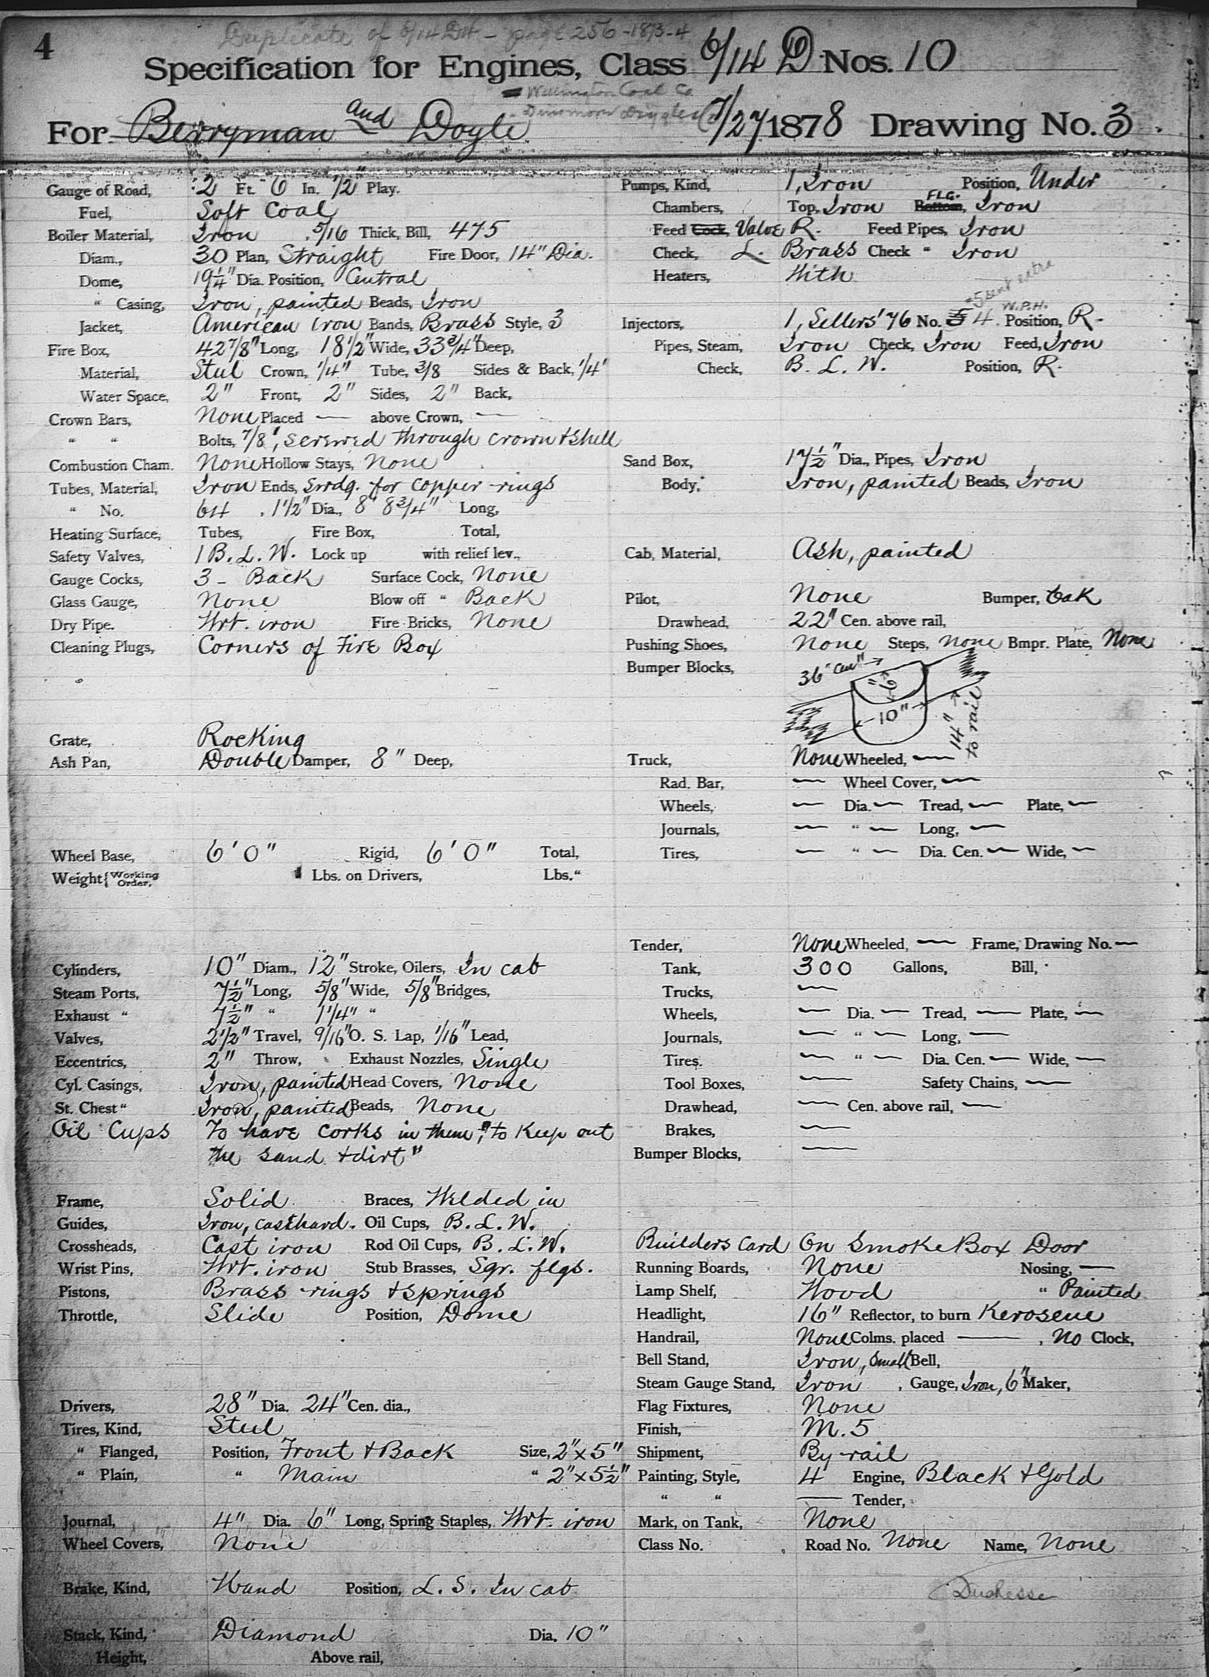 4
Duplicate of 6/14 D 4 - page 256 - 1873-4
Specification for Engines, Class 6/14 D Nos. 10
Wellington Coal Co
For Berryman and Doyle 7/27 1878 Drawing No. 3
Gauge of Road, 2 Ft. 6 In. 1/2" Play.
Fuel, Soft Coal
Boiler Material, Iron 5/16 Thick, Bill, 475
Diam., 30 Plan, Straight Fire Door, 14" Dia.
Dome, 19 1/4" Dia. Position, Central
" Casing, Iron, painted Beads, Iron
Jacket, American iron Bands, Brass Style, 3
Fire Box, 42 7/8" Long, 18 1/2" Wide, 33 3/4" Deep,
Material, Steel Crown, 1/4" Tube, 3/8 Sides & Back, 1/4"
Water Space, 2" Front, 2" Sides, 2" Back,
Crown Bars, None Placed — above Crown, —
" " Bolts, 7/8", screwed through crown & shell
Combustion Cham. None Hollow Stays, None
Tubes, Material, Iron Ends, Swdg. for copper rings
" No. 64 1 1/2" Dia., 8' 8 3/4" Long,
Heating Surface, Tubes, Fire Box, Total,
Safety Valves, 1 B. L. W. Lock up with relief lev.,
Gauge Cocks, 3 - Back Surface Cock, None
Glass Gauge, None Blow off " Back
Dry Pipe. Wrt. iron Fire Bricks, None
Cleaning Plugs, Corners of Fire Box
"
Grate, Rocking
Ash Pan, Double Damper, 8" Deep,
Wheel Base, 6' 0" Rigid, 6' 0" Total,
Weight { Working Order, Lbs. on Drivers, Lbs. "
Cylinders, 10" Diam., 12" Stroke, Oilers, In cab
Steam Ports, 7 1/2" Long, 5/8" Wide, 5/8" Bridges,
Exhaust " 7 1/2" " 1 1/4" "
Valves, 2 1/2" Travel, 9/16" O. S. Lap, 1/16" Lead,
Eccentrics, 2" Throw, Exhaust Nozzles, Single
Cyl. Casings, Iron, painted Head Covers, None
St. Chest " Iron, painted Beads, None
Oil Cups To have corks in them, "to keep out
the sand & dirt"
Frame, Solid Braces, Welded in
Guides, Iron, casehard. Oil Cups, B. L. W.
Crossheads, Cast iron Rod Oil Cups, B. L. W.
Wrist Pins, Wrt. iron Stub Brasses, Sqr. flgs.
Pistons, Brass rings & springs
Throttle, Slide Position, Dome
Drivers, 28" Dia. 24" Cen. dia.,
Tires, Kind, Steel
" Flanged, Position, Front & Back Size, 2" x 5"
" Plain, " Main " 2" x 5 1/2"
Journal, 4" Dia. 6" Long, Spring Staples, Wrt. iron
Wheel Covers, None
Brake, Kind, Hand Position, L. S. In cab
Stack, Kind, Diamond Dia. 10"
Height, Above rail,
Pumps, Kind, 1, Iron Position, Under
Chambers, Top, Iron Bottom, FLG. Iron
Feed Cock, Valve R. Feed Pipes, Iron
Check, L. Brass Check " Iron
Heaters, With
5 sent extra
W.P.H.
Injectors, 1, Sellers' 76 No. 5 4 Position, R.
Pipes, Steam, Iron Check, Iron Feed, Iron
Check, B. L. W. Position, R.
Sand Box, 17 1/2" Dia., Pipes, Iron
Body, Iron, painted Beads, Iron
Cab, Material, Ash, painted
Pilot, None Bumper, Oak
Drawhead, 22" Cen. above rail,
Pushing Shoes, None Steps, None Bmpr. Plate, None
Bumper Blocks,
36" cen"
6"
10"
14" to rail
Truck, None Wheeled, —
Rad. Bar, — Wheel Cover, —
Wheels, — Dia. — Tread, — Plate, —
Journals, — " — Long, —
Tires, — " — Dia. Cen. — Wide, —
Tender, None Wheeled, — Frame, Drawing No. —
Tank, 300 Gallons, Bill,
Trucks, —
Wheels, — Dia. — Tread, — Plate, —
Journals, — " — Long, —
Tires. — " — Dia. Cen. — Wide, —
Tool Boxes, — Safety Chains, —
Drawhead, — Cen. above rail, —
Brakes, —
Bumper Blocks, —
Builders Card On Smoke Box Door
Running Boards, None Nosing, —
Lamp Shelf, Wood " Painted
Headlight, 16" Reflector, to burn Kerosene
Handrail, None Colms. placed — , No Clock,
Bell Stand, Iron, Small Bell,
Steam Gauge Stand, Iron , Gauge, Iron, 6" Maker,
Flag Fixtures, None
Finish, M. 5
Shipment, By rail
Painting, Style, 4 Engine, Black & Gold
" " — Tender,
Mark, on Tank, None
Class No. Road No. None Name, None
Duchesse